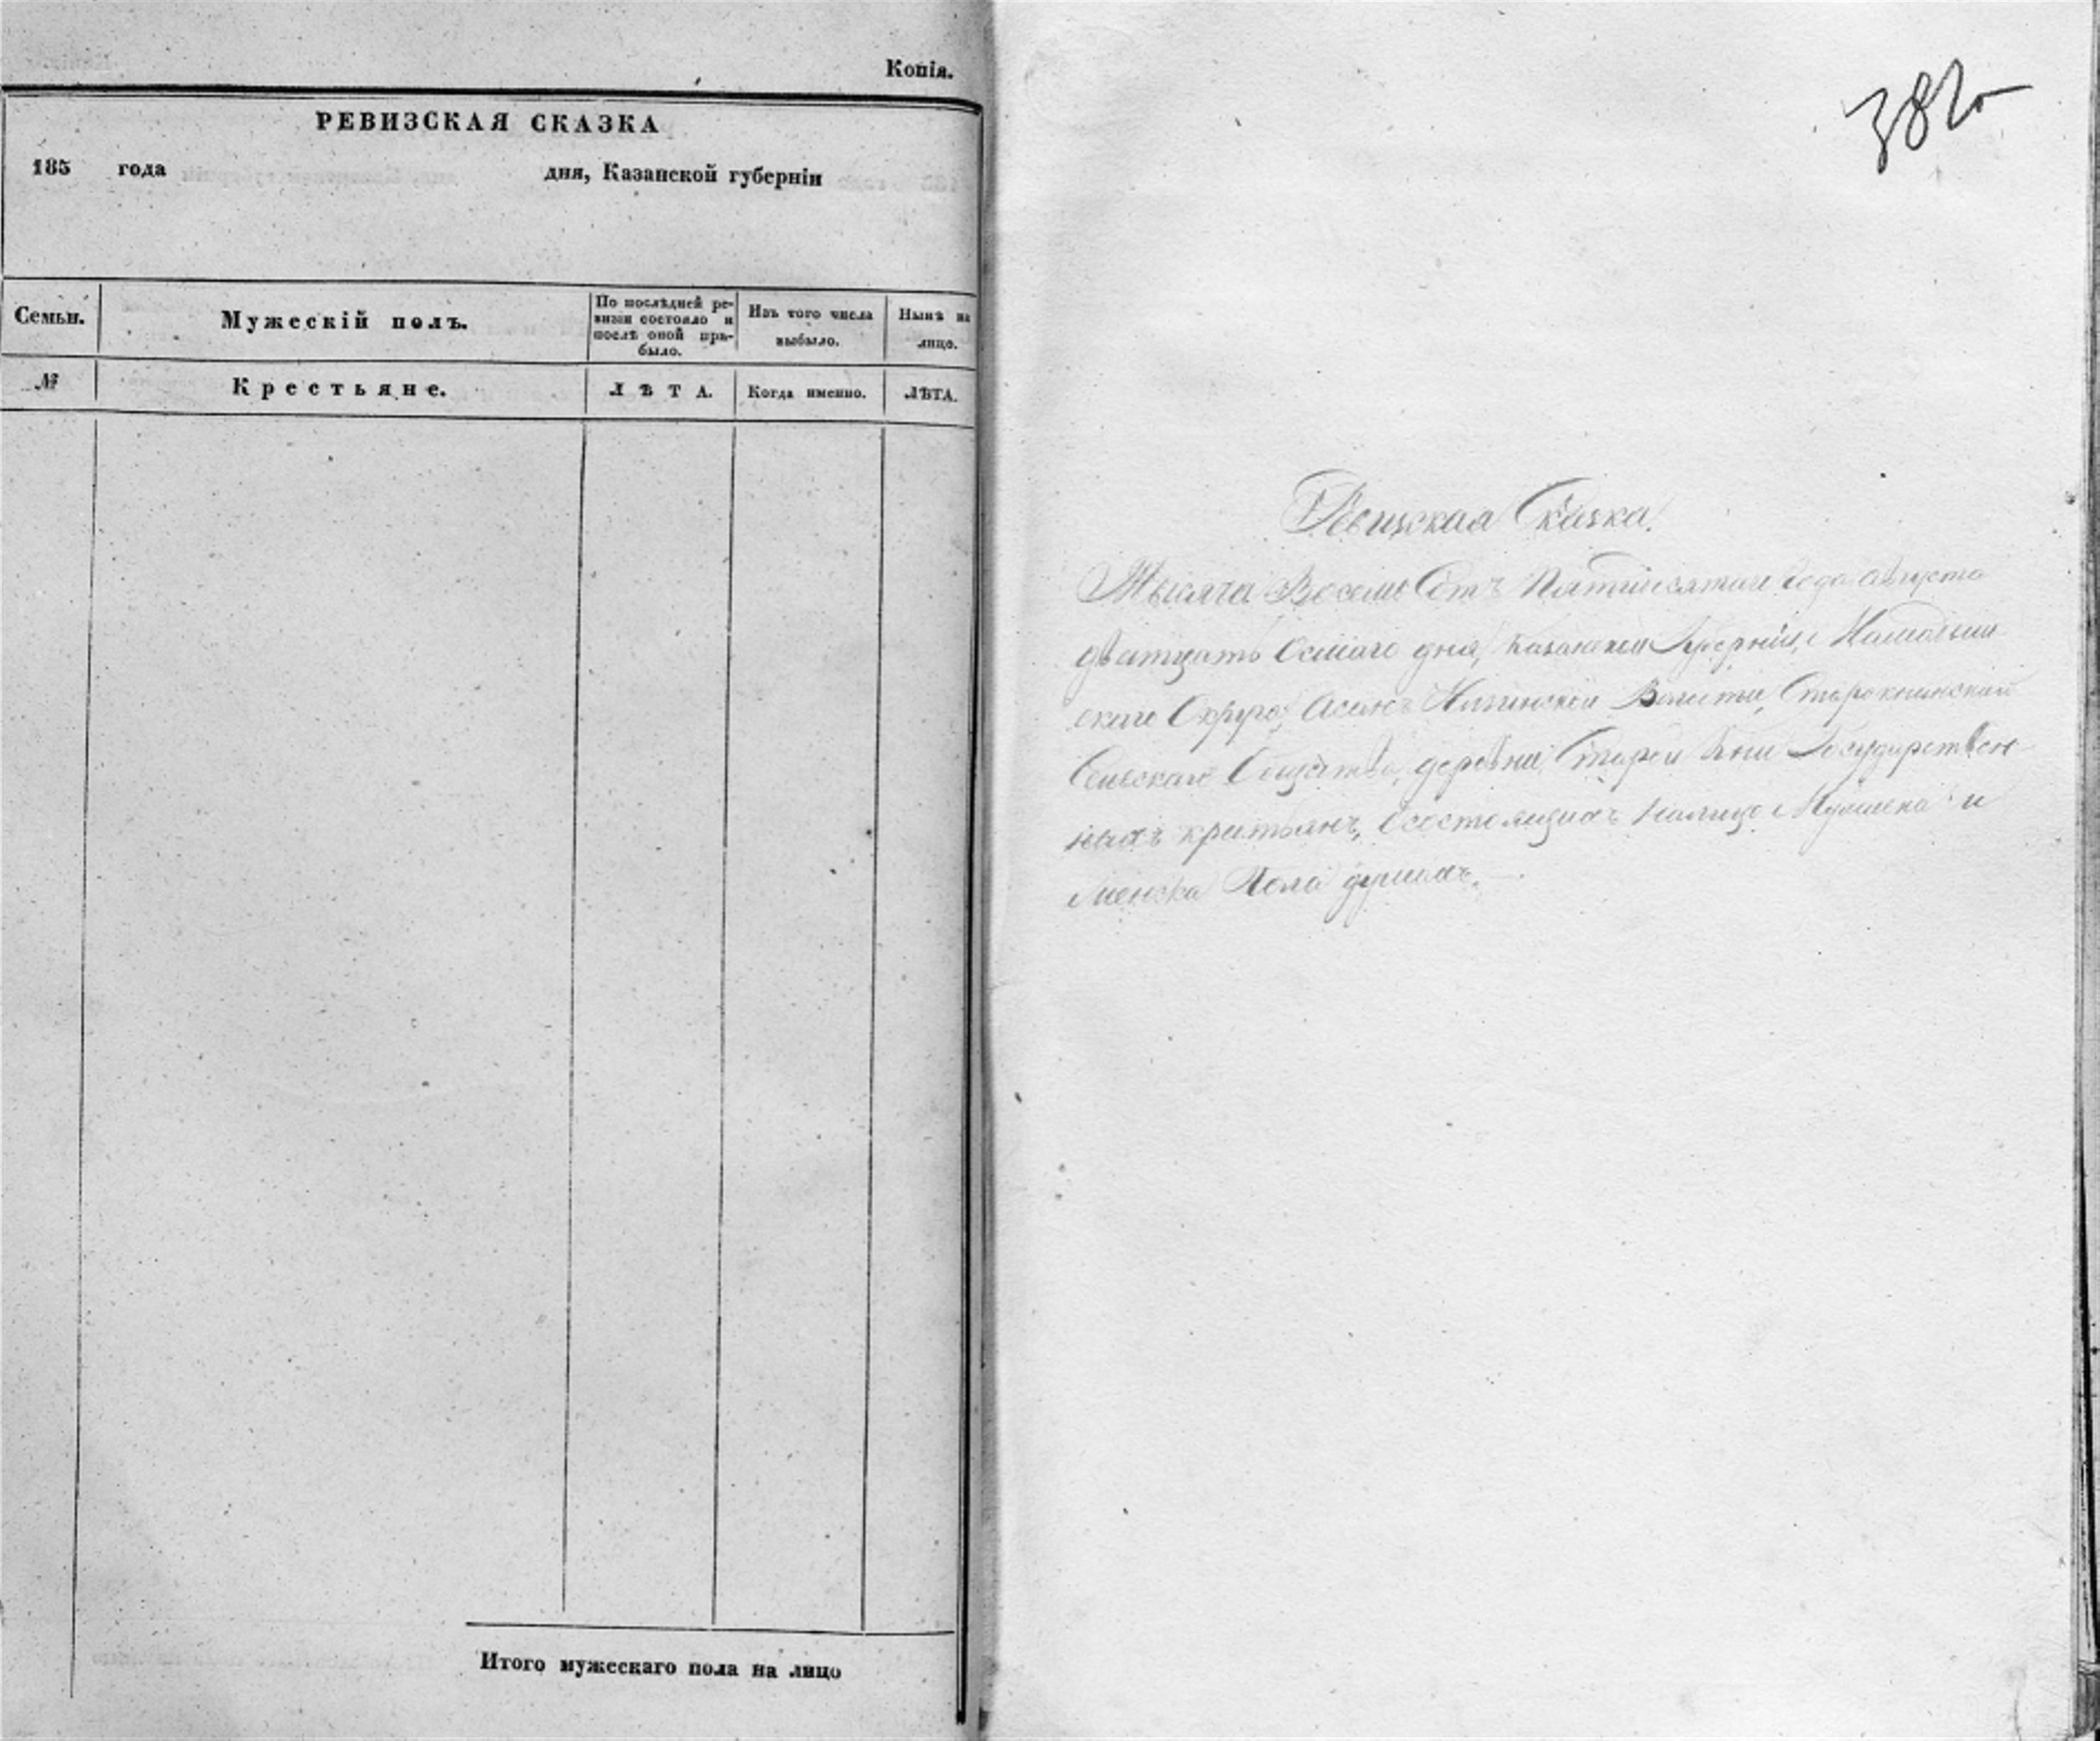 Копія.
РЕВИЗСКАЯ СКАЗКА
185 года дня, Казанской губерніи
Семьи.
Мужескій полъ.
По послѣдней ре-
визіи состояло и
послѣ оной при-
было.
Изъ того числа
выбыло.
Нынѣ на
лицо.
№
Крестьяне.
ЛѢТА.
Когда именно.
ЛѢТА.
Итого мужескаго пола на лицо
382
Ревизская Сказка.
Тысяча Восемь Сотъ Пятидесятаго Года Августа
дватцать Осмаго дня, Казанской Губерніи, Мамадыш
скаго Округа, Асанъ Волости, Старокнинскаго
Сельскаго Общества, деревни Старой Кни Государствен
ныхъ крестьянъ, Осостоящихъ Налицо Мужеска и
женска Пола душахъ.